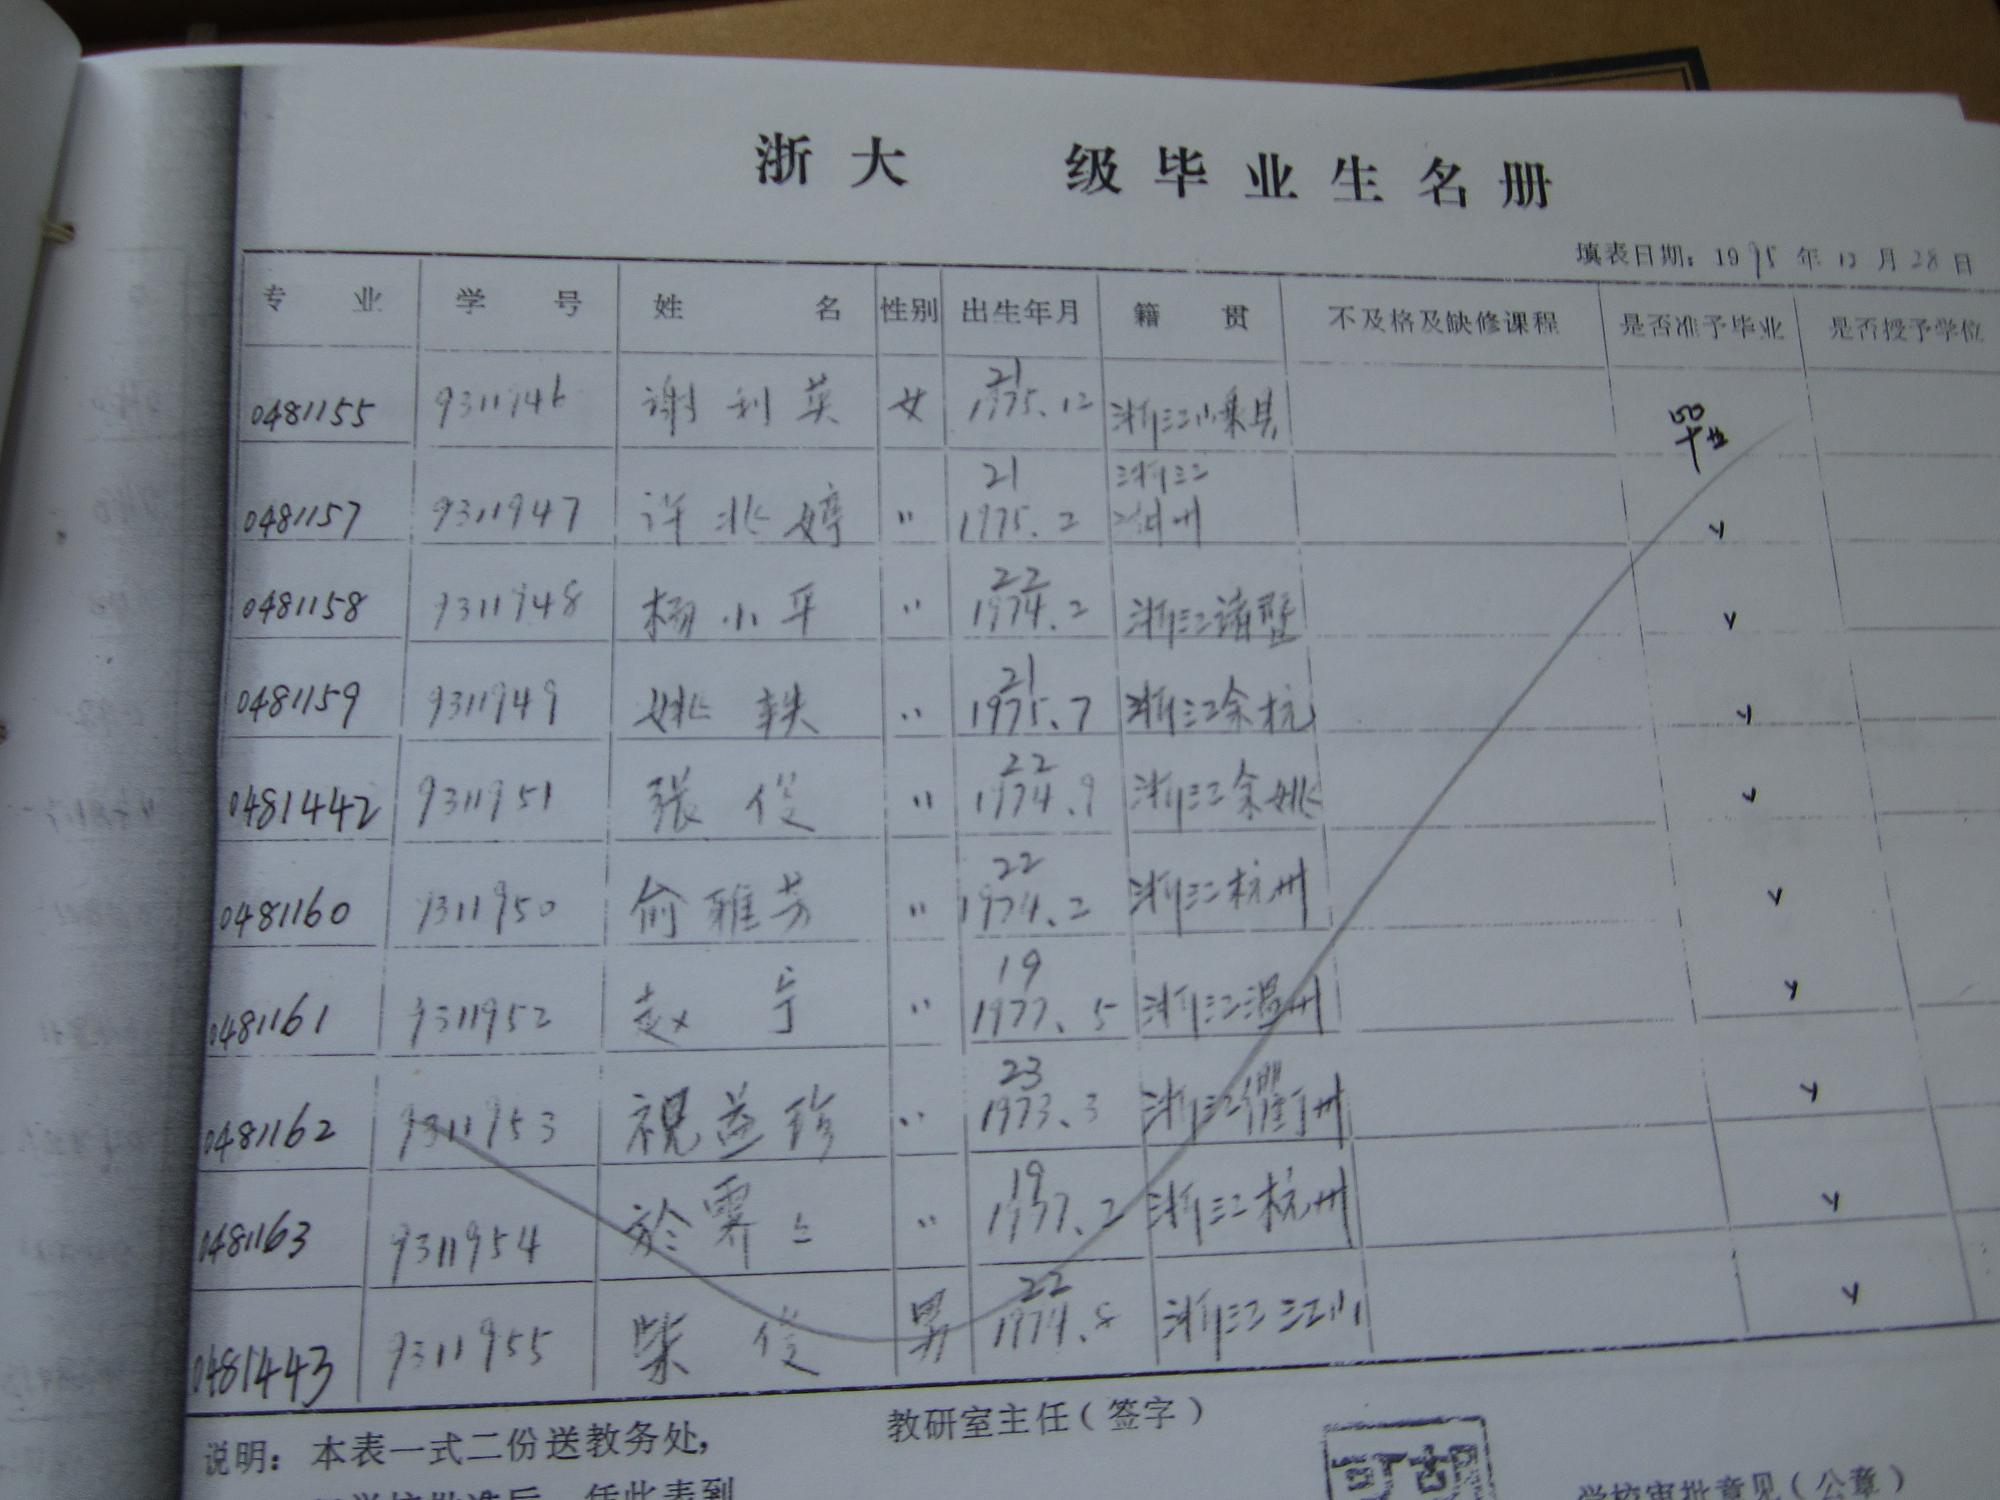 浙大 级毕业生名册
填表日期：1995年12月28日
专业 学号 姓名 性别 出生年月 籍贯 不及格及缺修课程 是否准予毕业 是否授予学位
0481155 9311946 谢利英 女 21 1975.12 浙江 毕业
0481157 9311947 许兆婷 〃 21 1975.2 浙江 √
0481158 9311948 杨小平 〃 22 1974.2 浙江诸暨 √
0481159 9311949 姚轶 〃 21 1975.7 浙江余杭 √
0481442 9311951 张俊 〃 22 1974.9 浙江余姚 √
0481160 9311950 俞雅芳 〃 22 1974.2 浙江杭州 √
0481161 9311952 赵宁 〃 19 1977.5 浙江温州 √
0481162 9311953 祝益珍 〃 23 1973.3 浙江衢州 √
0481163 9311954 於霁 〃 19 1977.2 浙江杭州 √
0481443 9311955 柴俊 男 22 1974.8 浙江江山 √
说明：本表一式二份送教务处，
教研室主任（签字）
学校审批意见（公章）
凭此表到